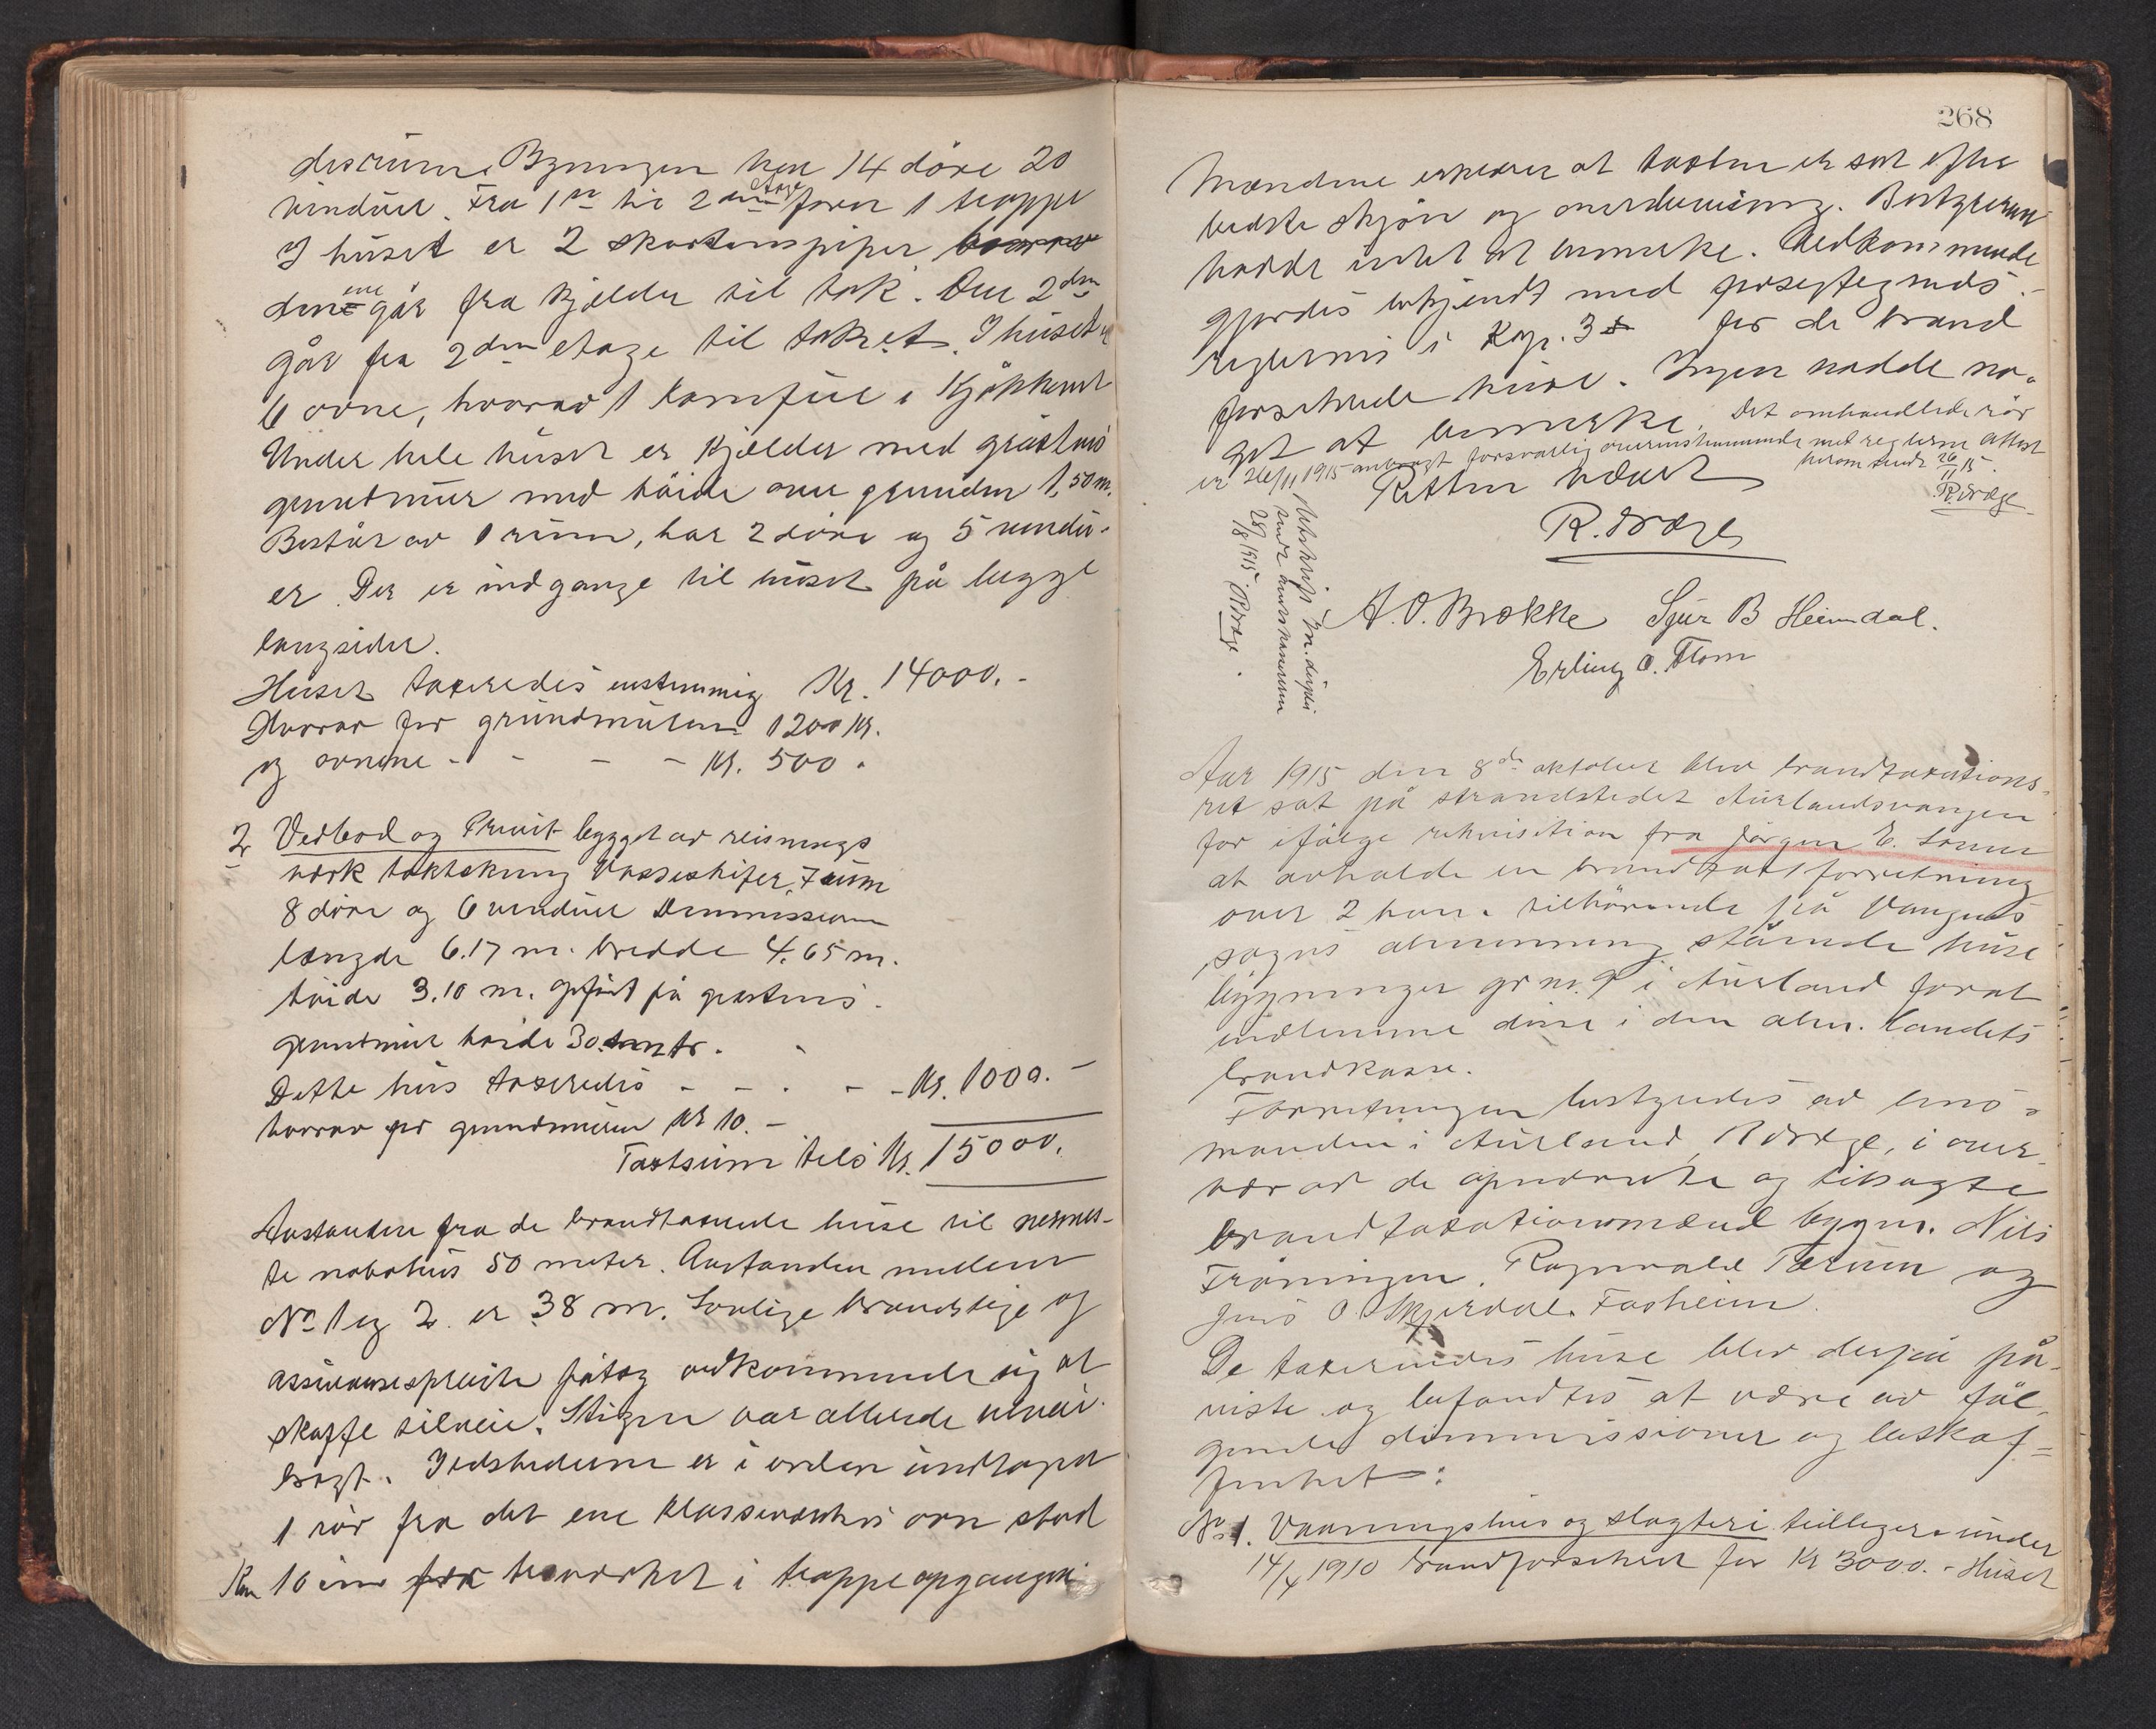 disrum. Bygningen har 14 döre 20
vinduer. Fra 1ste til 2den etage förer 1 trappe
I huset er 2 skorstenspiper
den ene går fra kjælder til tak. Den 2den
går fra 2den etage til taket. I huset er
6 ovne, hvorav 1 komfur i Kjökkenet
Under hele huset er kjælder med gråstens
grundmur med höide over grunden 1,50 m.
Består av 1 rum, har 2 döre og 5 vindu-
er. Der er indgange til huset på begge
langsider.
Huset taxeredes enstemmig Kr. 14000.-
Hvorav for grundmuren 1200 Kr.
og ovnene - - - - Kr. 500.
2 Vedbod og Privit bygget av reisnings
værk taktekning Vosseskifer, 7 rum
8 döre og 6 vinduer Dimmissioner
længde 6.17 m. bredde 4.65 m.
höide 3.10 m. opfört på gråstens
grundmur höide 30 cmtr.
Dette hus taxeredes - - - - Kr. 1000.-
hvorav for grundmuren Kr 10.-
Taxtsum tils Kr. 15000.
Avstanden fra de brandtaxerede huse til nærmes-
te nabohus 50 meter. Avstanden mellem
No 1 og 2 er 38 m. Lovlige brandstige og
assuransesprøite påtog vedkommende sig at
skaffe tilveie. Stigen var allerede tilveie-
bragt. Ildstederne er i orden undtagen
1 rör fra det ene klasseværelses ovn stod
kun 10 cm fra træverket i trappeopgangen
268
Mændene erklærer at taxten er sat efter
bedste skjön og overbevisning. Bestyreren
hadde intet at bemerke. Vedkommende
gjordes bekjendt med forsigtigheds-
reglernes i Kap. 3 for de brand
forsikrede huse. Ingen hadde no-
get at bemerke. Det omhandlede rör
er 26/11 1915 anbragt forsvarlig overensstemmende med reglerne Attest
herom sendt 26/11 15.
R. Dræge
Retten hævet
R. Dræge
Utskrift in duplo
sendt amtmanden
28/8 1915 R Dræge.
A. O. Brække Sjur B Heimdal.
Erling O. Flom
Aar 1915 den 8de oktober blev brandtaxations-
ret sat på strandstedet Aurlandsvangen
for ifölge rekvisition fra Jörgen E. Sonne
at avholde en brandtaxtforretning
over 2 ham tilhörende på Vangens
sogns almenning stående huse
bygninger gr nr. 9 i Aurland forat
indlemme disse i den alm. landets
brandkasse.
Forretningen bestyredes av lens-
manden i Aurland, R Dræge, i over-
vær av de opnævnte og tilsagte
brandtaxationsmænd bygm. Nils
Fröningen, Ragnvald Tærum og
Jens O. Skjerdal. Fasheim.
De taxerendes huse blev derpå på-
viste og befandtes at være av föl-
gende dimmissioner og beskaf=
fenhet:
No 1. Vaaningshus og slagteri tidligere under
14/4 1910 brandforsikret for Kr 3000.- Huset